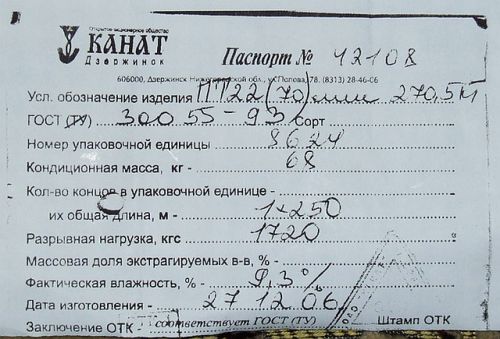 Открытое акционерное общество
КАНАТ
Дзержинск
Паспорт № 12108
606000, Дзержинск Нижегородской обл., ул.Попова, 78. (8313) 28-46-06
Усл. обозначение изделия ПП22(70)мм 270,5м
ГОСТ (ТУ) 30055-93 Сорт
Номер упаковочной единицы 8624
Кондиционная масса, кг - 68
Кол-во концов в упаковочной единице -
их общая длина, м - 1×250
Разрывная нагрузка, кгс 1720
Массовая доля экстрагируемых в-в, % -
Фактическая влажность, % - 9,3%
Дата изготовления - 27 12 06
Заключение ОТК - соответствует ГОСТ (ТУ) Штамп ОТК
ОАО